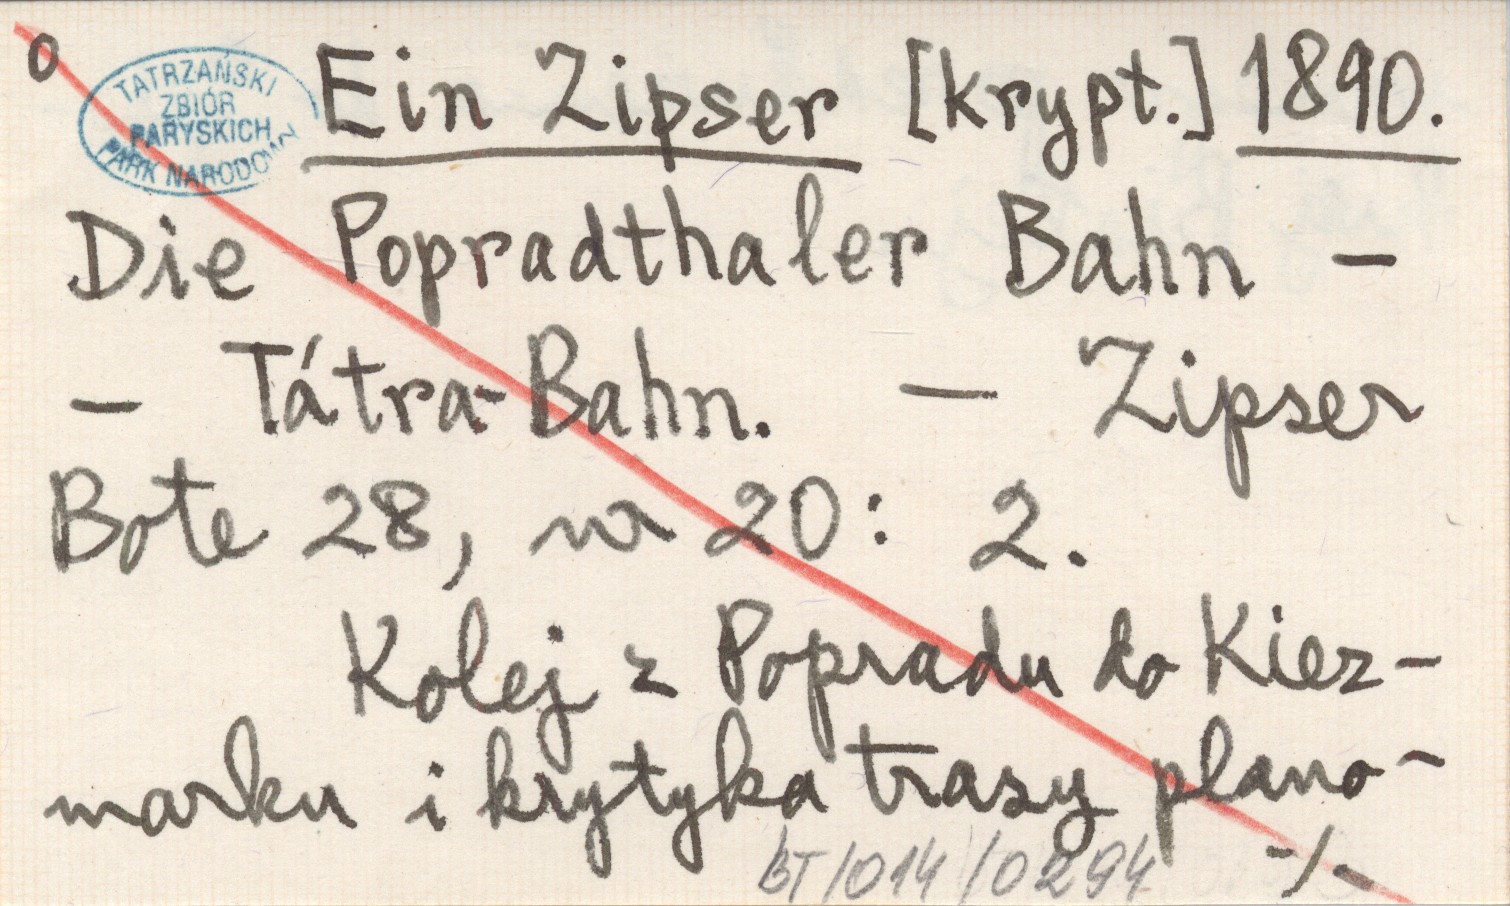 o
TATRZAŃSKI
ZBIÓR
PARYSKICH
PARK NARODOWY
Ein Zipser [krypt.] 1890.
Die Popradthaler Bahn –
– Tátra-Bahn. – Zipser
Bote 28, nr 20: 2.
Kolej z Popradu do Kiez-
marku i krytyka trasy plano-
BT/014/0294 -/-